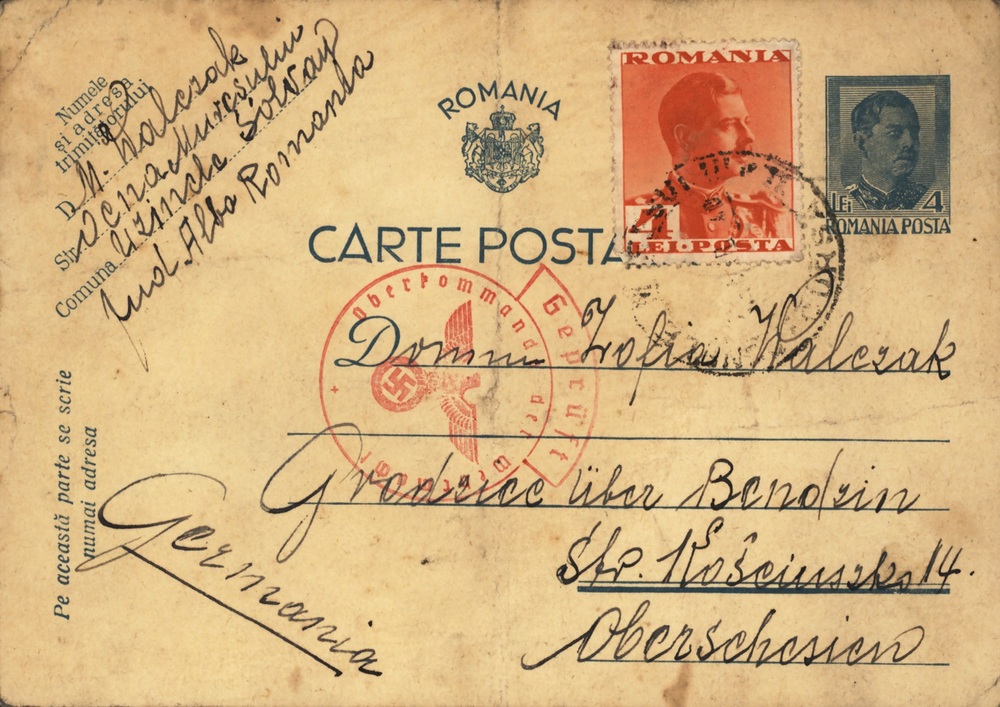 Numele
și adresa
trimițătorului
D M. Walczak
Str. Ocna Mureșului
Comuna Uzinele Solvay
Jud. Alba Romania
ROMANIA
CARTE POSTA
ROMANIA
4
LEI·POSTA
LEI 4
ROMANIA POSTA
Oberkommando der Wehrmacht
Geprüft
Domnu Zofia Walczak
Grodziec über Bendzin
Str. Kościuszko 14.
Oberschesien
Germania
Pe această parte se scrie
numai adresa